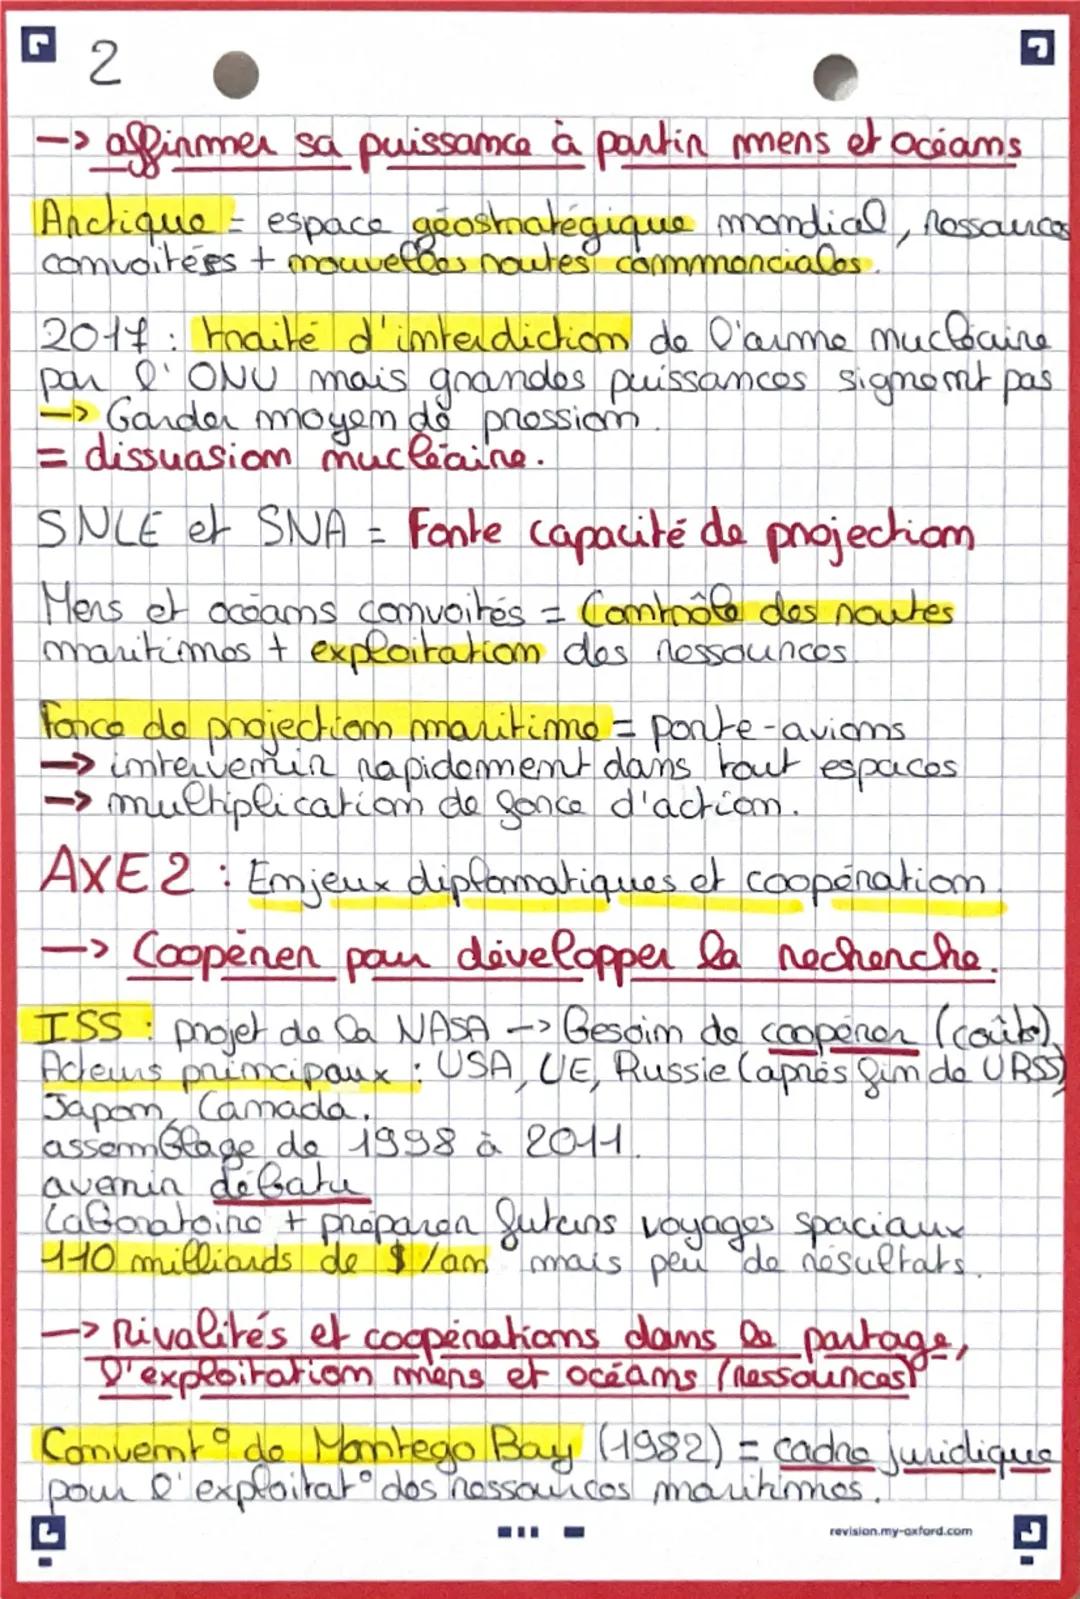 2
-> affirmer sa puissance à partir mers et océans
Arctique = espace géostratégique mondial, ressources
convoitées + nouvelles routes commerciales.
2017 : traité d'interdiction de l'arme nucléaire
par l'ONU mais grandes puissances signent pas
-> Garder moyen de pression.
= dissuasion nucléaire.
SNLE et SNA = Forte capacité de projection
Mers et océans convoités = Contrôle des routes
maritimes + exploitation des ressources.
Force de projection maritime = porte-avions
-> intervenir rapidement dans tout espaces
-> multiplication de force d'action.
AXE 2 : Enjeux diplomatiques et coopération.
-> Coopérer pour développer la recherche.
ISS : projet de la NASA -> Besoin de coopérer (coûts)
Acteurs principaux : USA, UE, Russie (après fin de URSS)
Japon, Canada.
assemblage de 1998 à 2011.
avenir débatu
Laboratoire + préparer futurs voyages spaciaux
110 milliards de $/an mais peu de résultats.
-> Rivalités et coopérations dans le partage,
l'exploitation mers et océans (ressources)
Convent° de Montego Bay (1982) = cadre juridique
pour l'exploitat° des ressources maritimes.
revision.my-oxford.com